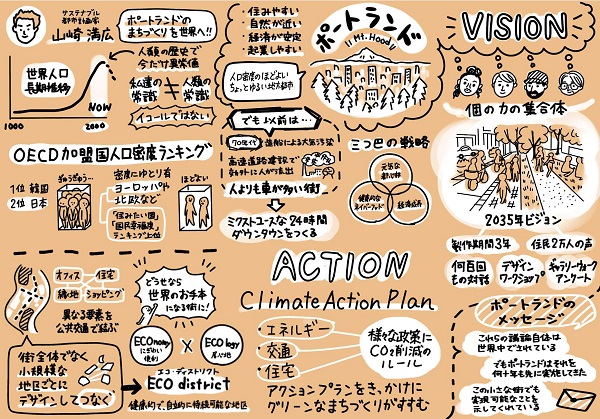 サステナブル
都市計画家
山崎 満広
ポートランドの
まちづくりを世界へ!!
世界人口
長期推移
NOW
1000
2000
人類の歴史で
今だけ異常値
私達の
常識
≠
人類の
常識
イコールではない
OECD加盟国人口密度ランキング
1位 韓国
2位 日本
ぎゅうぎゅう…
密度にゆとり有
ヨーロッパや
北欧など
「住みたい国」
「国民幸福度」
ランキング上位
ほどよい
・住みやすい
・自然が近い
・経済が安定
・起業しやすい
人口密度のほどよい
ちょっとゆるい地方都市
ポートランド
Mt.Hood
でも以前は…
70年代
造船による大気汚染
高速道路建設で
郊外に人が流出
人よりも車が多い街
ミクストユースな24時間
ダウンタウンをつくる
三つ巴の戦略
元気な
都心部
健康的な
ネイバーフッド
経済成長
VISION
個の力の集合体
2035年ビジョン
製作期間3年
住民2万人の声
何百回
もの対話
デザイン
ワークショップ
ギャラリーウォーク
アンケート
オフィス
住宅
緑地
ショッピング
異なる要素を
公共交通で結ぶ
街全体でなく
小規模な
地区ごとに
デザインしてつなぐ
どうせなら
世界のお手本
になる街に!
ECOnomy
にぎわい
便利
×
ECOlogy
居心地
エコ・ディストリクト
ECO district
健康的で、自立的に持続可能な地区
ACTION
Climate Action Plan
・エネルギー
・交通
・住宅
様々な政策に
CO2削減の
ルール
アクションプランをきっかけに
グリーンなまちづくりがすすむ
ポートランドの
メッセージ
これらの議論自体は
世界中でされている
でもポートランドはそれを
何十年も先に実施してきた
この小さな街でも
実現可能なことを
示してくれている